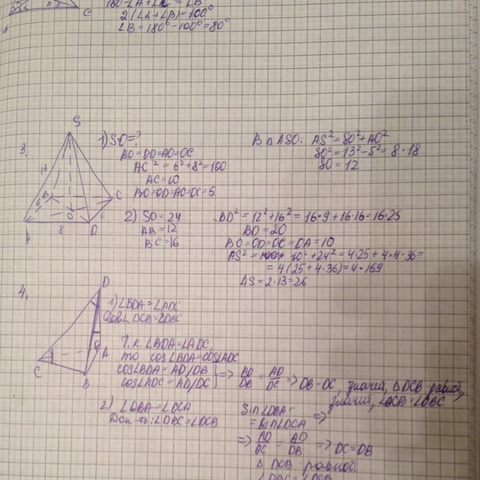 2(∠A+∠B)=100°
∠B=180°-100°=80°
3.
S
13
B
C
5
O
6
A
8
D
1) SO=?
BO=DO=AO=OC
AC²=6²+8²=100
AC=10
BO=OD=AO=OC=5
В △ ASO: AS²=SO²+AO²
SO²=13²-5²=8·18
SO=12
2) SO=24
AB=12
BC=16
BD²=12²+16²=16·9+16·16=16·25
BD=20
BO=OD=OC=OA=10
AS²= 10²+24²=4·25+4·4·36=
=4(25+4·36)=4·169
AS=2·13=26
4.
D
C
A
B
1) ∠BDA=∠ADC
∠DCB=∠DBC
Т.к. ∠BDA=∠ADC,
то cos∠BDA=cos∠ADC
cos∠BDA=AD/DB
cos∠ADC=AD/DC
⇒ AD/DB = AD/DC ⇒ DB=DC, значит, △DCB равноб,
значит, ∠DCB=∠DBC
2) ∠DBA=∠DCA
Док-ть: ∠DBC=∠DCB
Sin∠DBA=
=Sin∠DCA ⇒
⇒ AD/DC = AD/DB ⇒ DC=DB
△ DCB равноб.
∠DBC=∠DCB